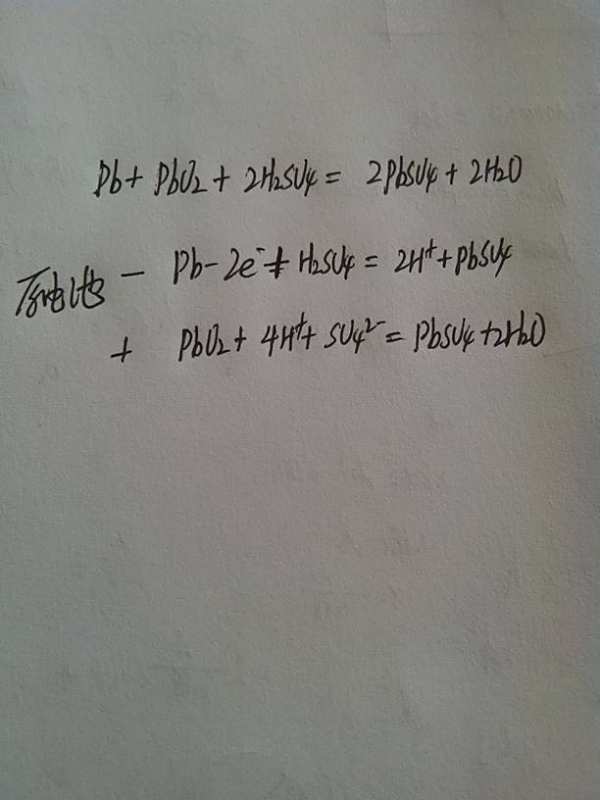 Pb + PbO2 + 2H2SO4 = 2PbSO4 + 2H2O
原电池 - Pb - 2e⁻ + H2SO4 = 2H⁺ + PbSO4
+ PbO2 + 4H⁺ + SO4²⁻ = PbSO4 + 2H2O